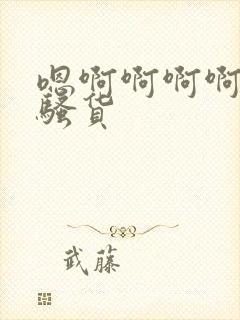 嗯啊啊啊啊
骚货
武藤